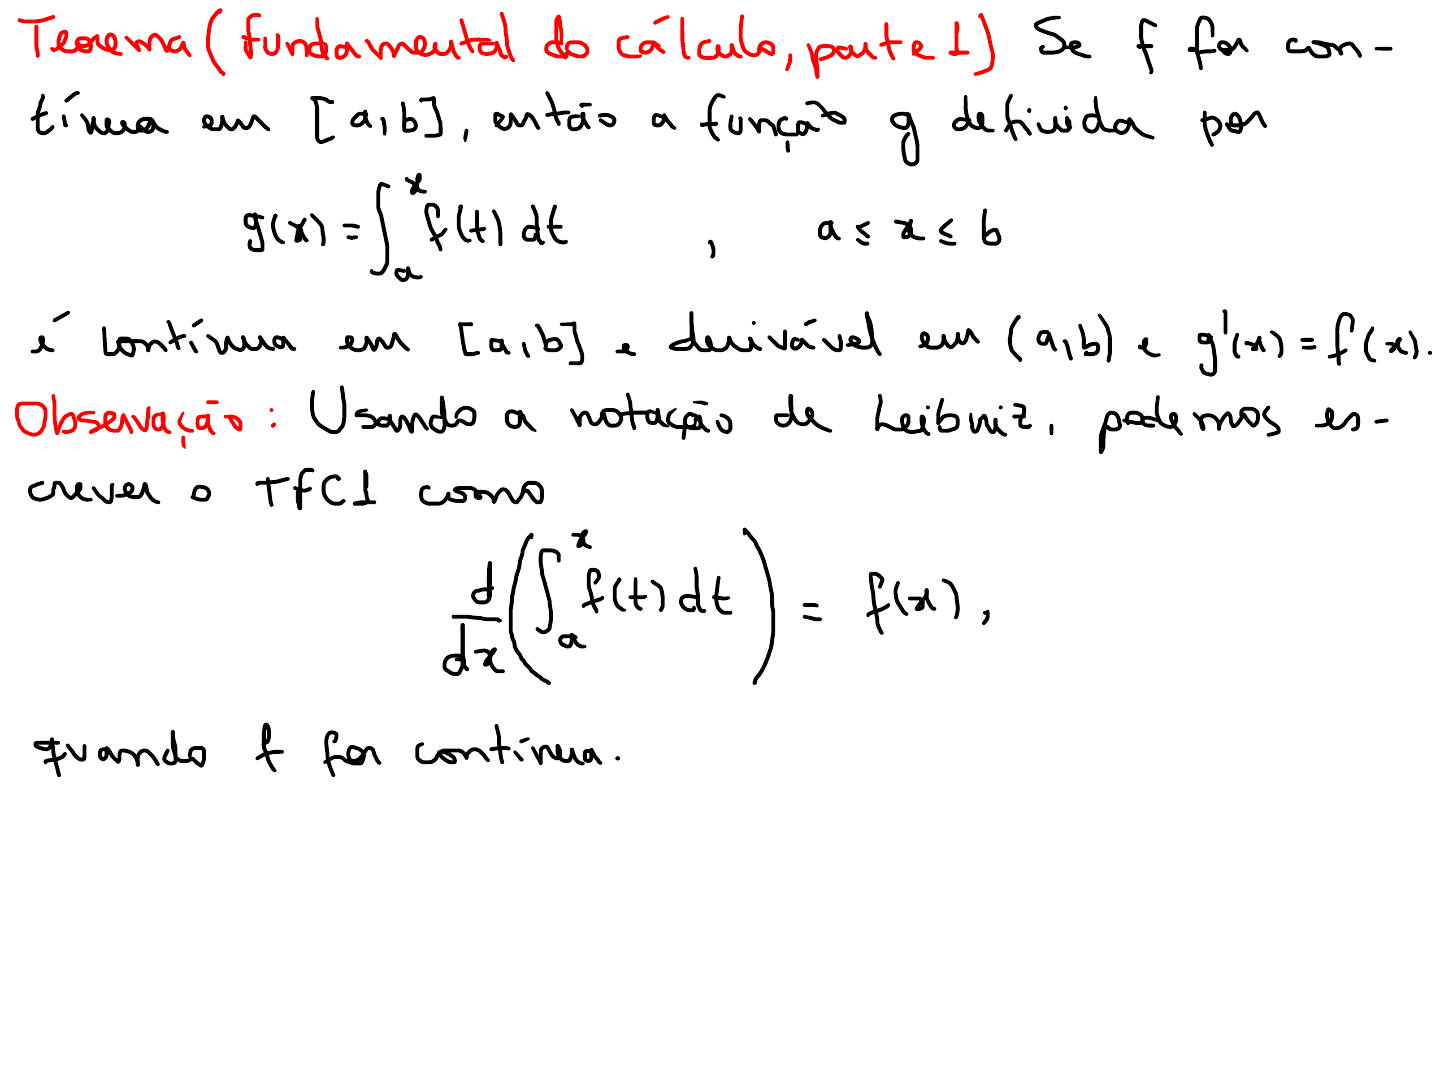 Teorema (fundamental do cálculo, parte 1) Se f for con-
tínua em [a,b], então a função g definida por
g(x) = ∫_a^x f(t) dt , a ≤ x ≤ b
é contínua em [a,b] e derivável em (a,b) e g'(x) = f(x).
Observação: Usando a notação de Leibniz, podemos es-
crever o TFC1 como
d/dx (∫_a^x f(t) dt) = f(x),
quando f for contínua.